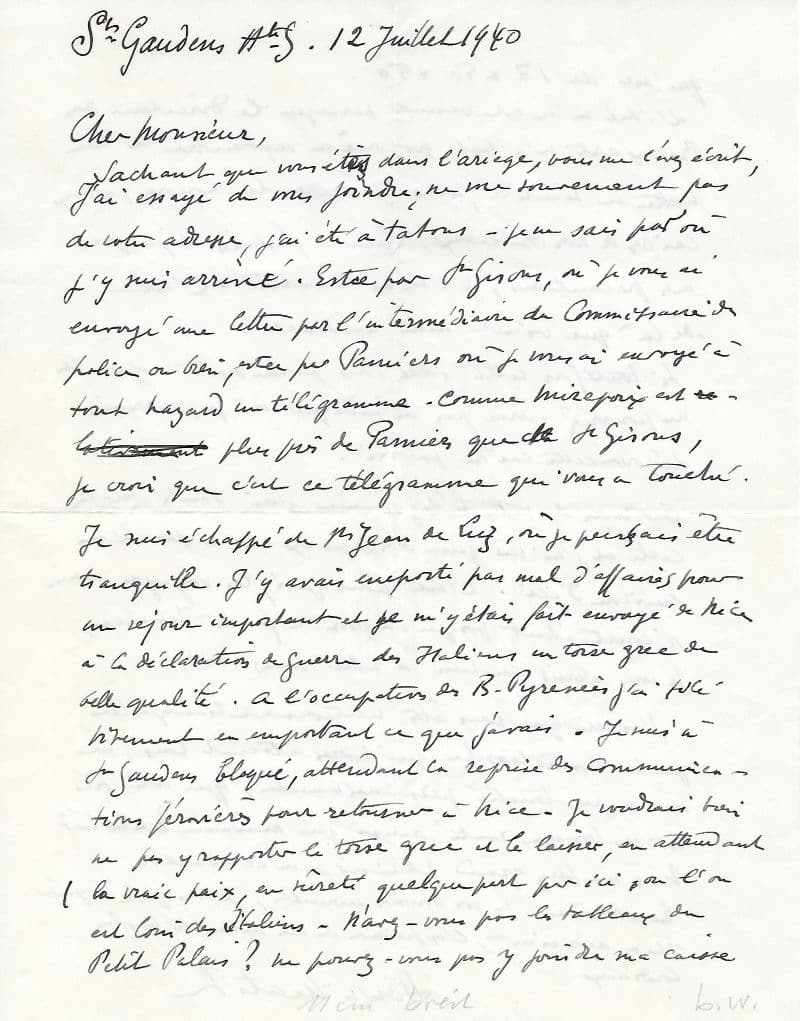 St Gaudens Hte G. 12 Juillet 1940
Cher Monsieur,
Sachant que vous étiez dans l'ariege, vous me l'avez écrit,
J'ai essayé de vous joindre; ne me souvenant pas
de votre adresse, j'ai été à tatons – je ne sais par où
j'y suis arrivé. Est ce par St Girons, où je vous ai
envoyé une lettre par l'intermédiaire du Commissaire de
police ou bien, est ce par Pamiers où je vous ai envoyé à
tout hazard un télégramme. Comme Mirepoix est
plus près de Pamiers que St Girons,
je crois que c'est ce télégramme qui vous a touché.
Je suis échappé de St Jean de Luz, où je pensais être
tranquille. J'y avais emporté pas mal d'affaires pour
un séjour important et je m'y étais fait envoyé de Nice
à la déclaration de guerre des Italiens un torse grec de
belle qualité. A l'occupation des B-Pyrenées j'ai filé
vivement en emportant ce que j'avais. Je suis à
St Gaudens bloqué, attendant la reprise des communica-
tions férovières pour retourner à Nice – Je voudrais bien
ne pas y rapporter le torse grec et le laisser, en attendant
( la vraie paix, en sûreté quelque part par ici, où l'on
est loin des Italiens – N'avez-vous pas les tableaux du
Petit Palais? ne pouvez-vous pas y joindre ma caisse
11 cm breit b.w.